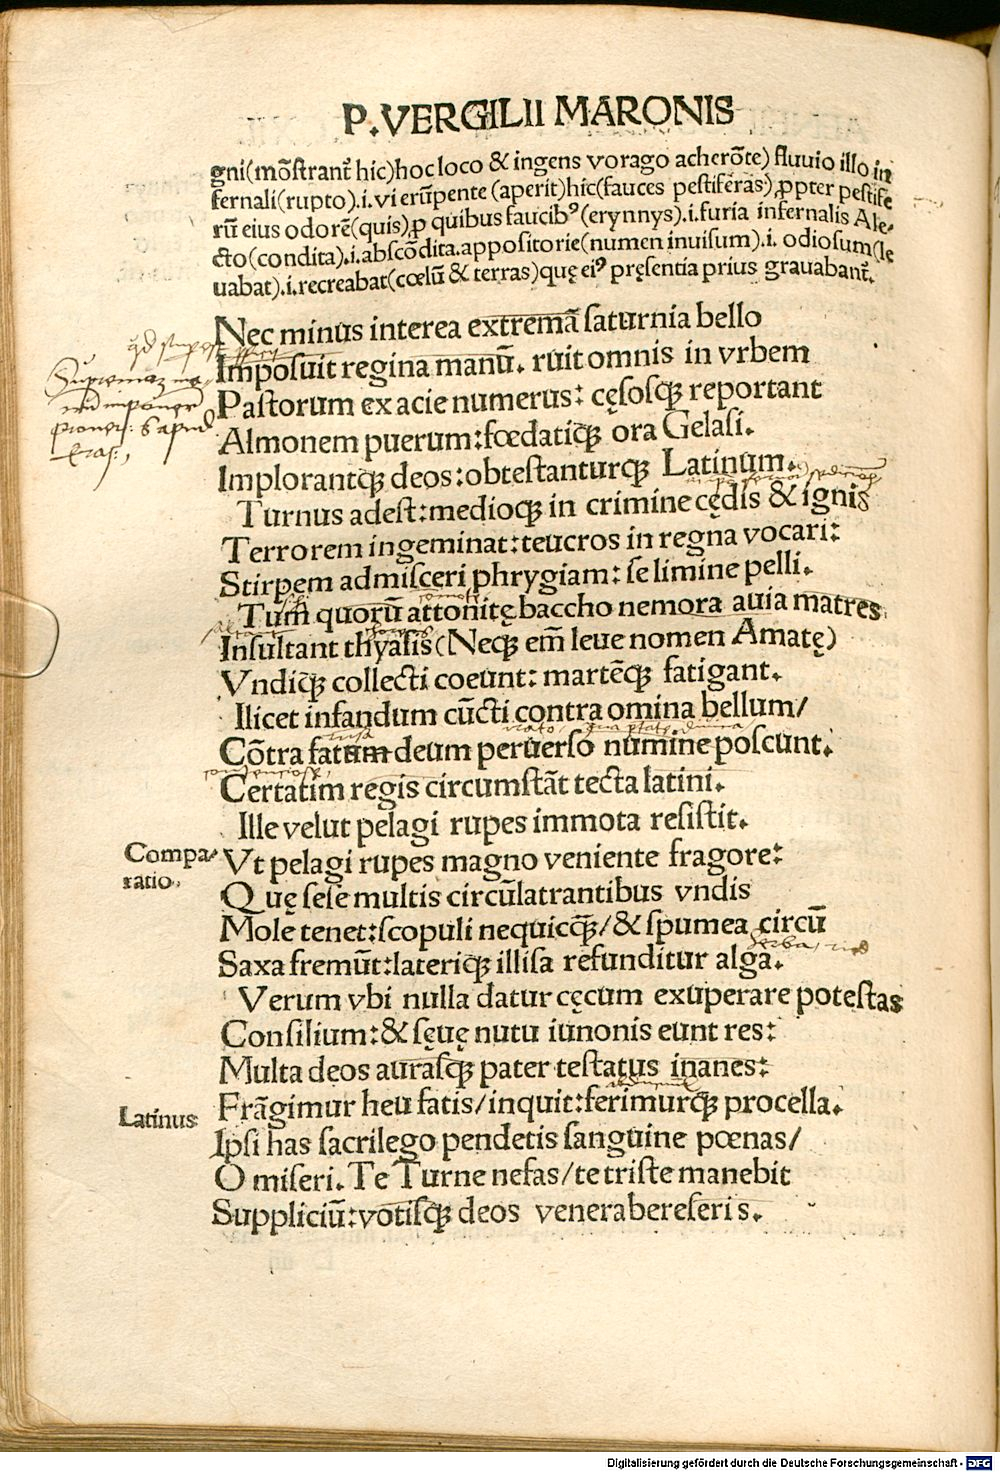 P. VERGILII MARONIS
gni(mõstrant᷑ hic)hoc loco & ingens vorago acherõte) fluuio illo in
fernali(rupto).i. vi erũpente (aperit)hic(fauces pestiferas),ꝓpter pestife
rũ eius odorẽ(quis),ꝑ quibus faucibꝰ(erynnys).i.furia infernalis Ale-
cto(condita).i.abscõdita.appositorie(numen inuisum).i. odiosum(le
uabat).i.recreabat(cœlũ & terras)quę eiꝰ pręsentia prius grauabant᷑.
Nec minus interea extremã saturnia bello
Imposuit regina manũ. ruit omnis in vrbem
Pastorum ex acie numerus: cęsosqꝫ reportant
Almonem puerum:fœdatiqꝫ ora Gelasi.
Implorantqꝫ deos:obtestanturqꝫ Latinum.
Turnus adest:medioqꝫ in crimine cędis & ignis
Terrorem ingeminat:teucros in regna vocari:
Stirpem admisceri phrygiam: se limine pelli.
Tum quorũ attonitę baccho nemora auia matres
Insultant thyasis(Neqꝫ em̃ leue nomen Amatę)
Vndiqꝫ collecti coeunt: martẽqꝫ fatigant.
Ilicet infandum cũcti contra omina bellum/
Cõtra fatum deum peruerso numine poscunt.
Certatim regis circumstãt tecta latini.
Ille velut pelagi rupes immota resistit.
Compa-
ratio.
Vt pelagi rupes magno veniente fragore:
Quę sese multis circũlatrantibus vndis
Mole tenet:scopuli nequicqꝫ̃/& spumea circũ
Saxa fremũt:lateriqꝫ illisa refunditur alga.
Verum vbi nulla datur cęcum exuperare potestas
Consilium:& sęuę nutu iunonis eunt res:
Multa deos aurasqꝫ pater testatus inanes:
Frãgimur heu fatis/inquit:ferimurqꝫ procella.
Latinus
Ipsi has sacrilego pendetis sanguine pœnas/
O miseri. Te Turne nefas/te triste manebit
Suppliciũ:votisqꝫ deos venerabere seris.
Digitalisierung gefördert durch die Deutsche Forschungsgemeinschaft - DFG